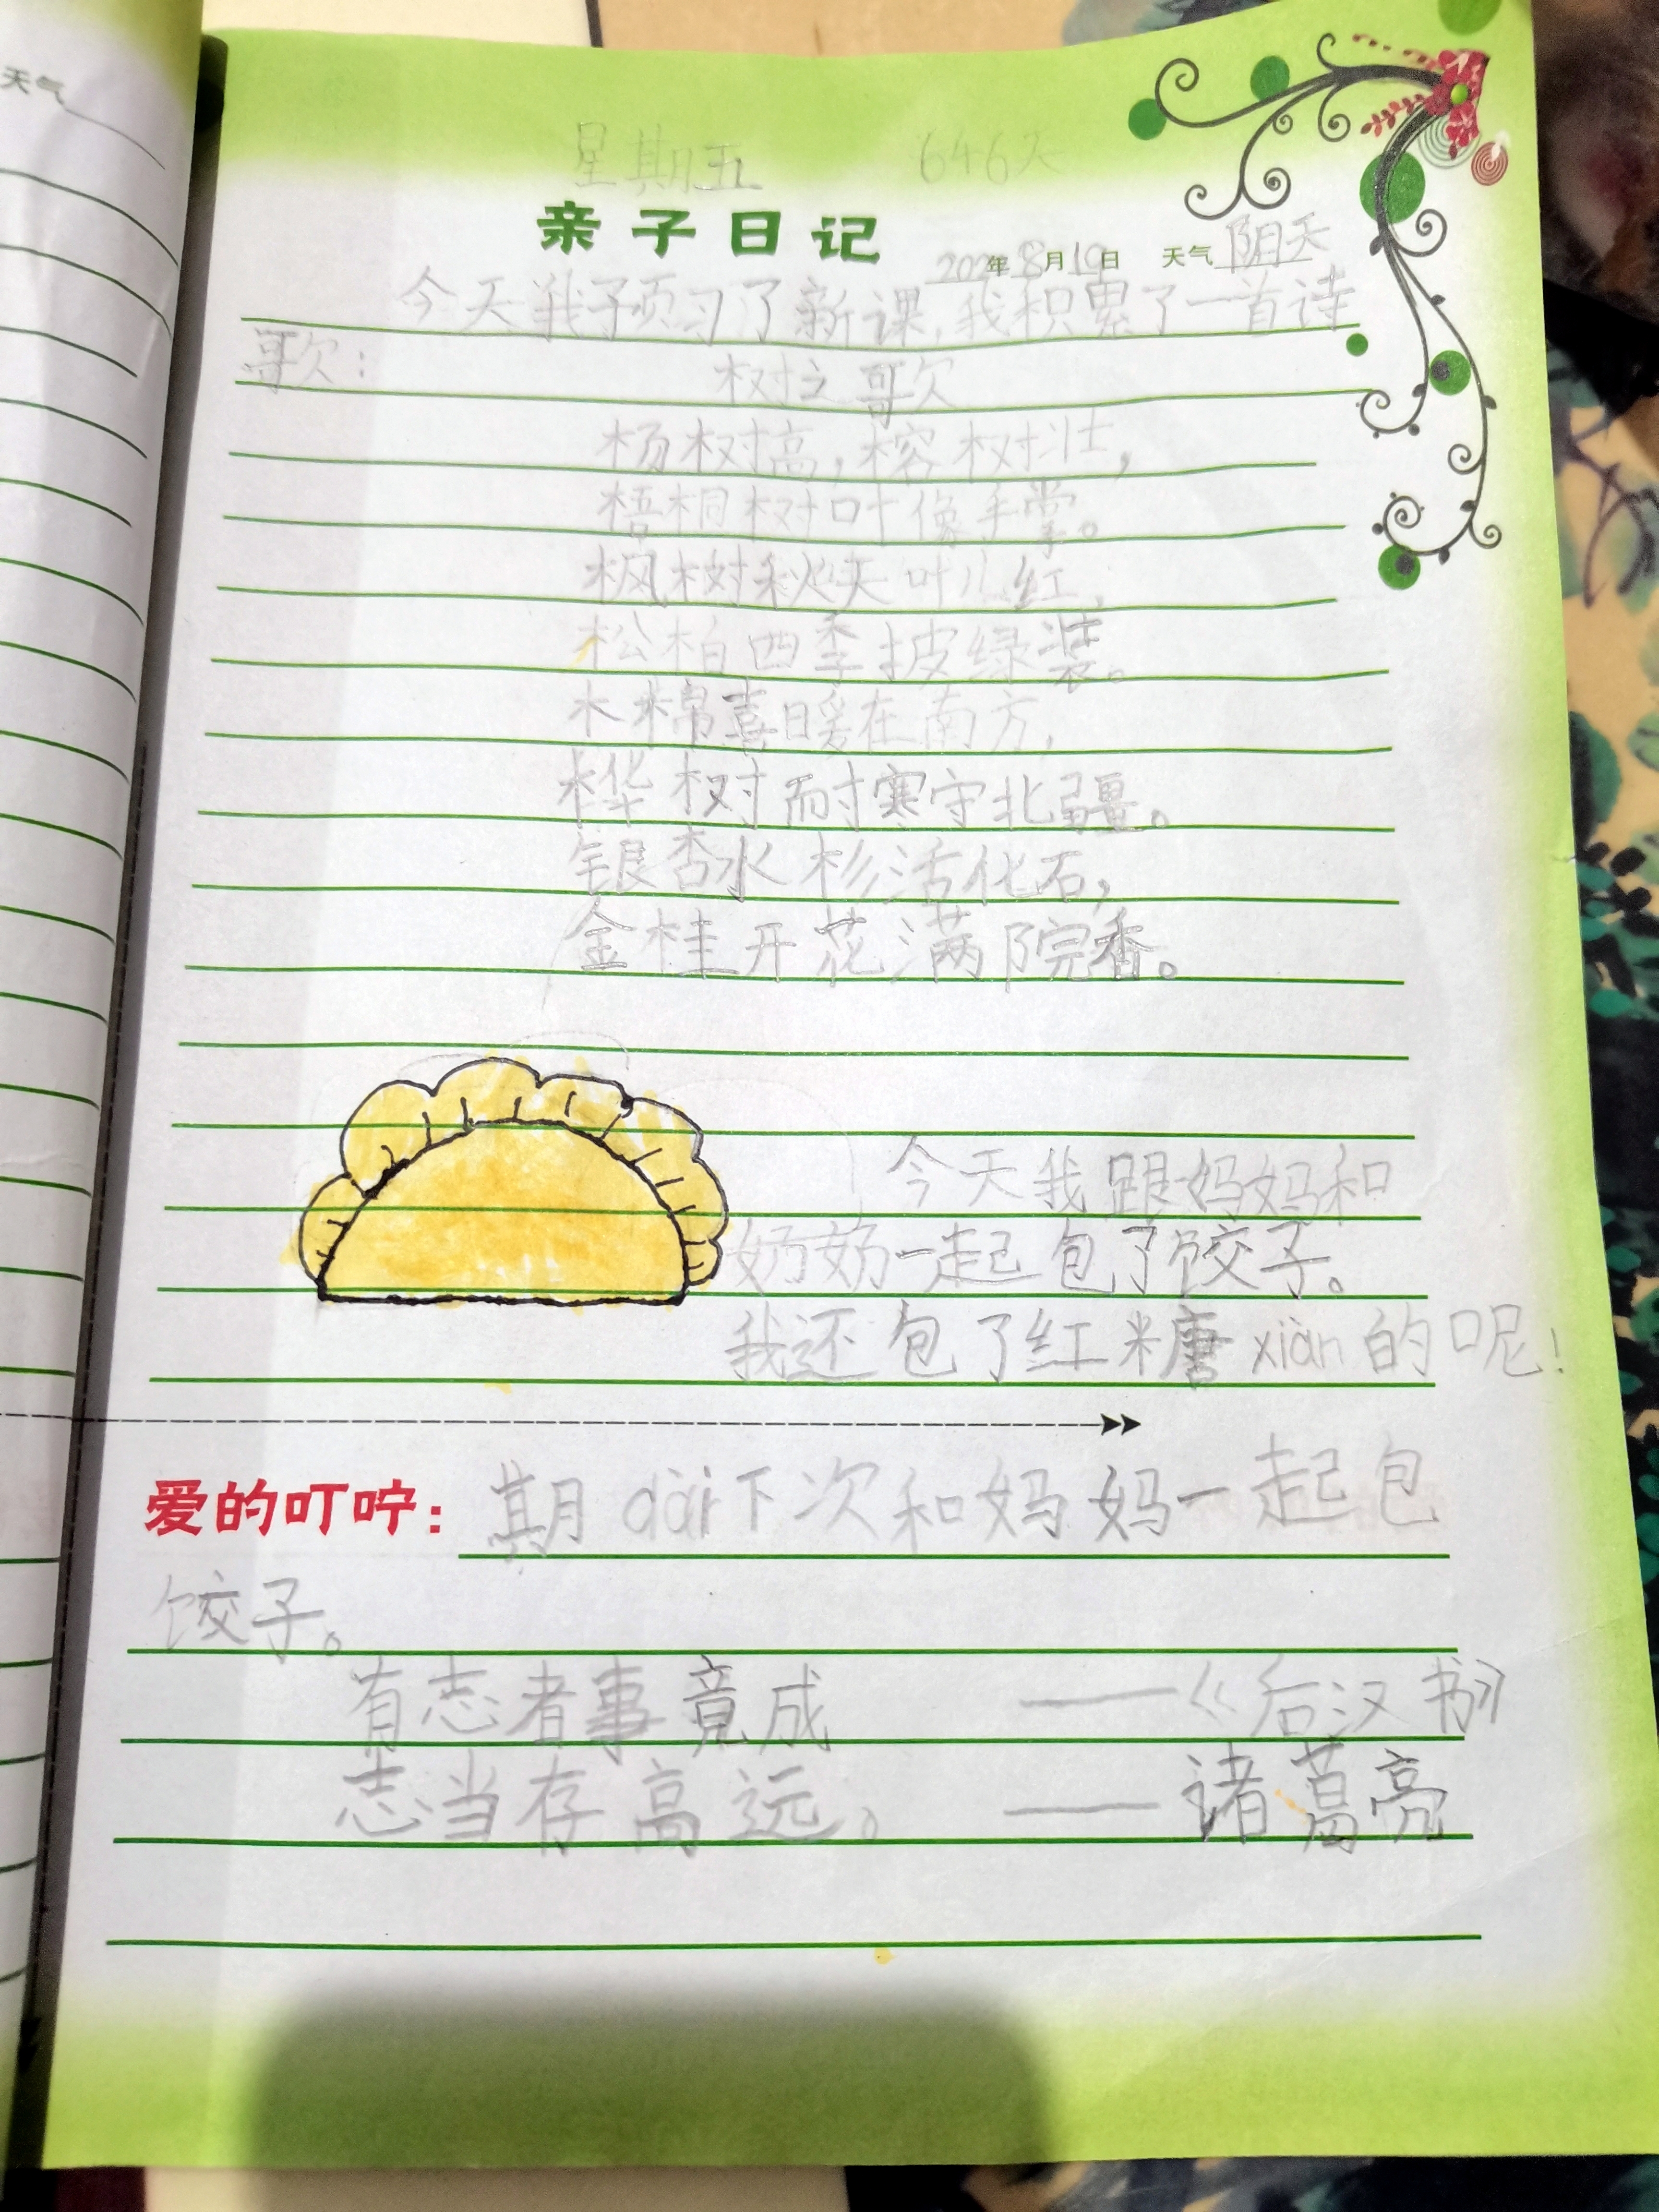 天气
星期五 646天
亲子日记 202年8月19日 天气 阴天
今天我予页习了新课,我积累了一首诗
歌:
树之歌
杨树高,榕树壮,
梧桐树叶像手掌。
枫树秋天叶儿红,
松柏四季披绿装。
木棉喜暖在南方,
桦树耐寒守北疆。
银杏水杉活化石,
金桂开花满院香。
今天我跟妈妈和
奶奶一起包了饺子。
我还包了红糖xiàn的呢!
爱的叮咛: 期dài下次和妈妈一起包
饺子。
有志者事竟成 ——《后汉书》
志当存高远。 ——诸葛亮